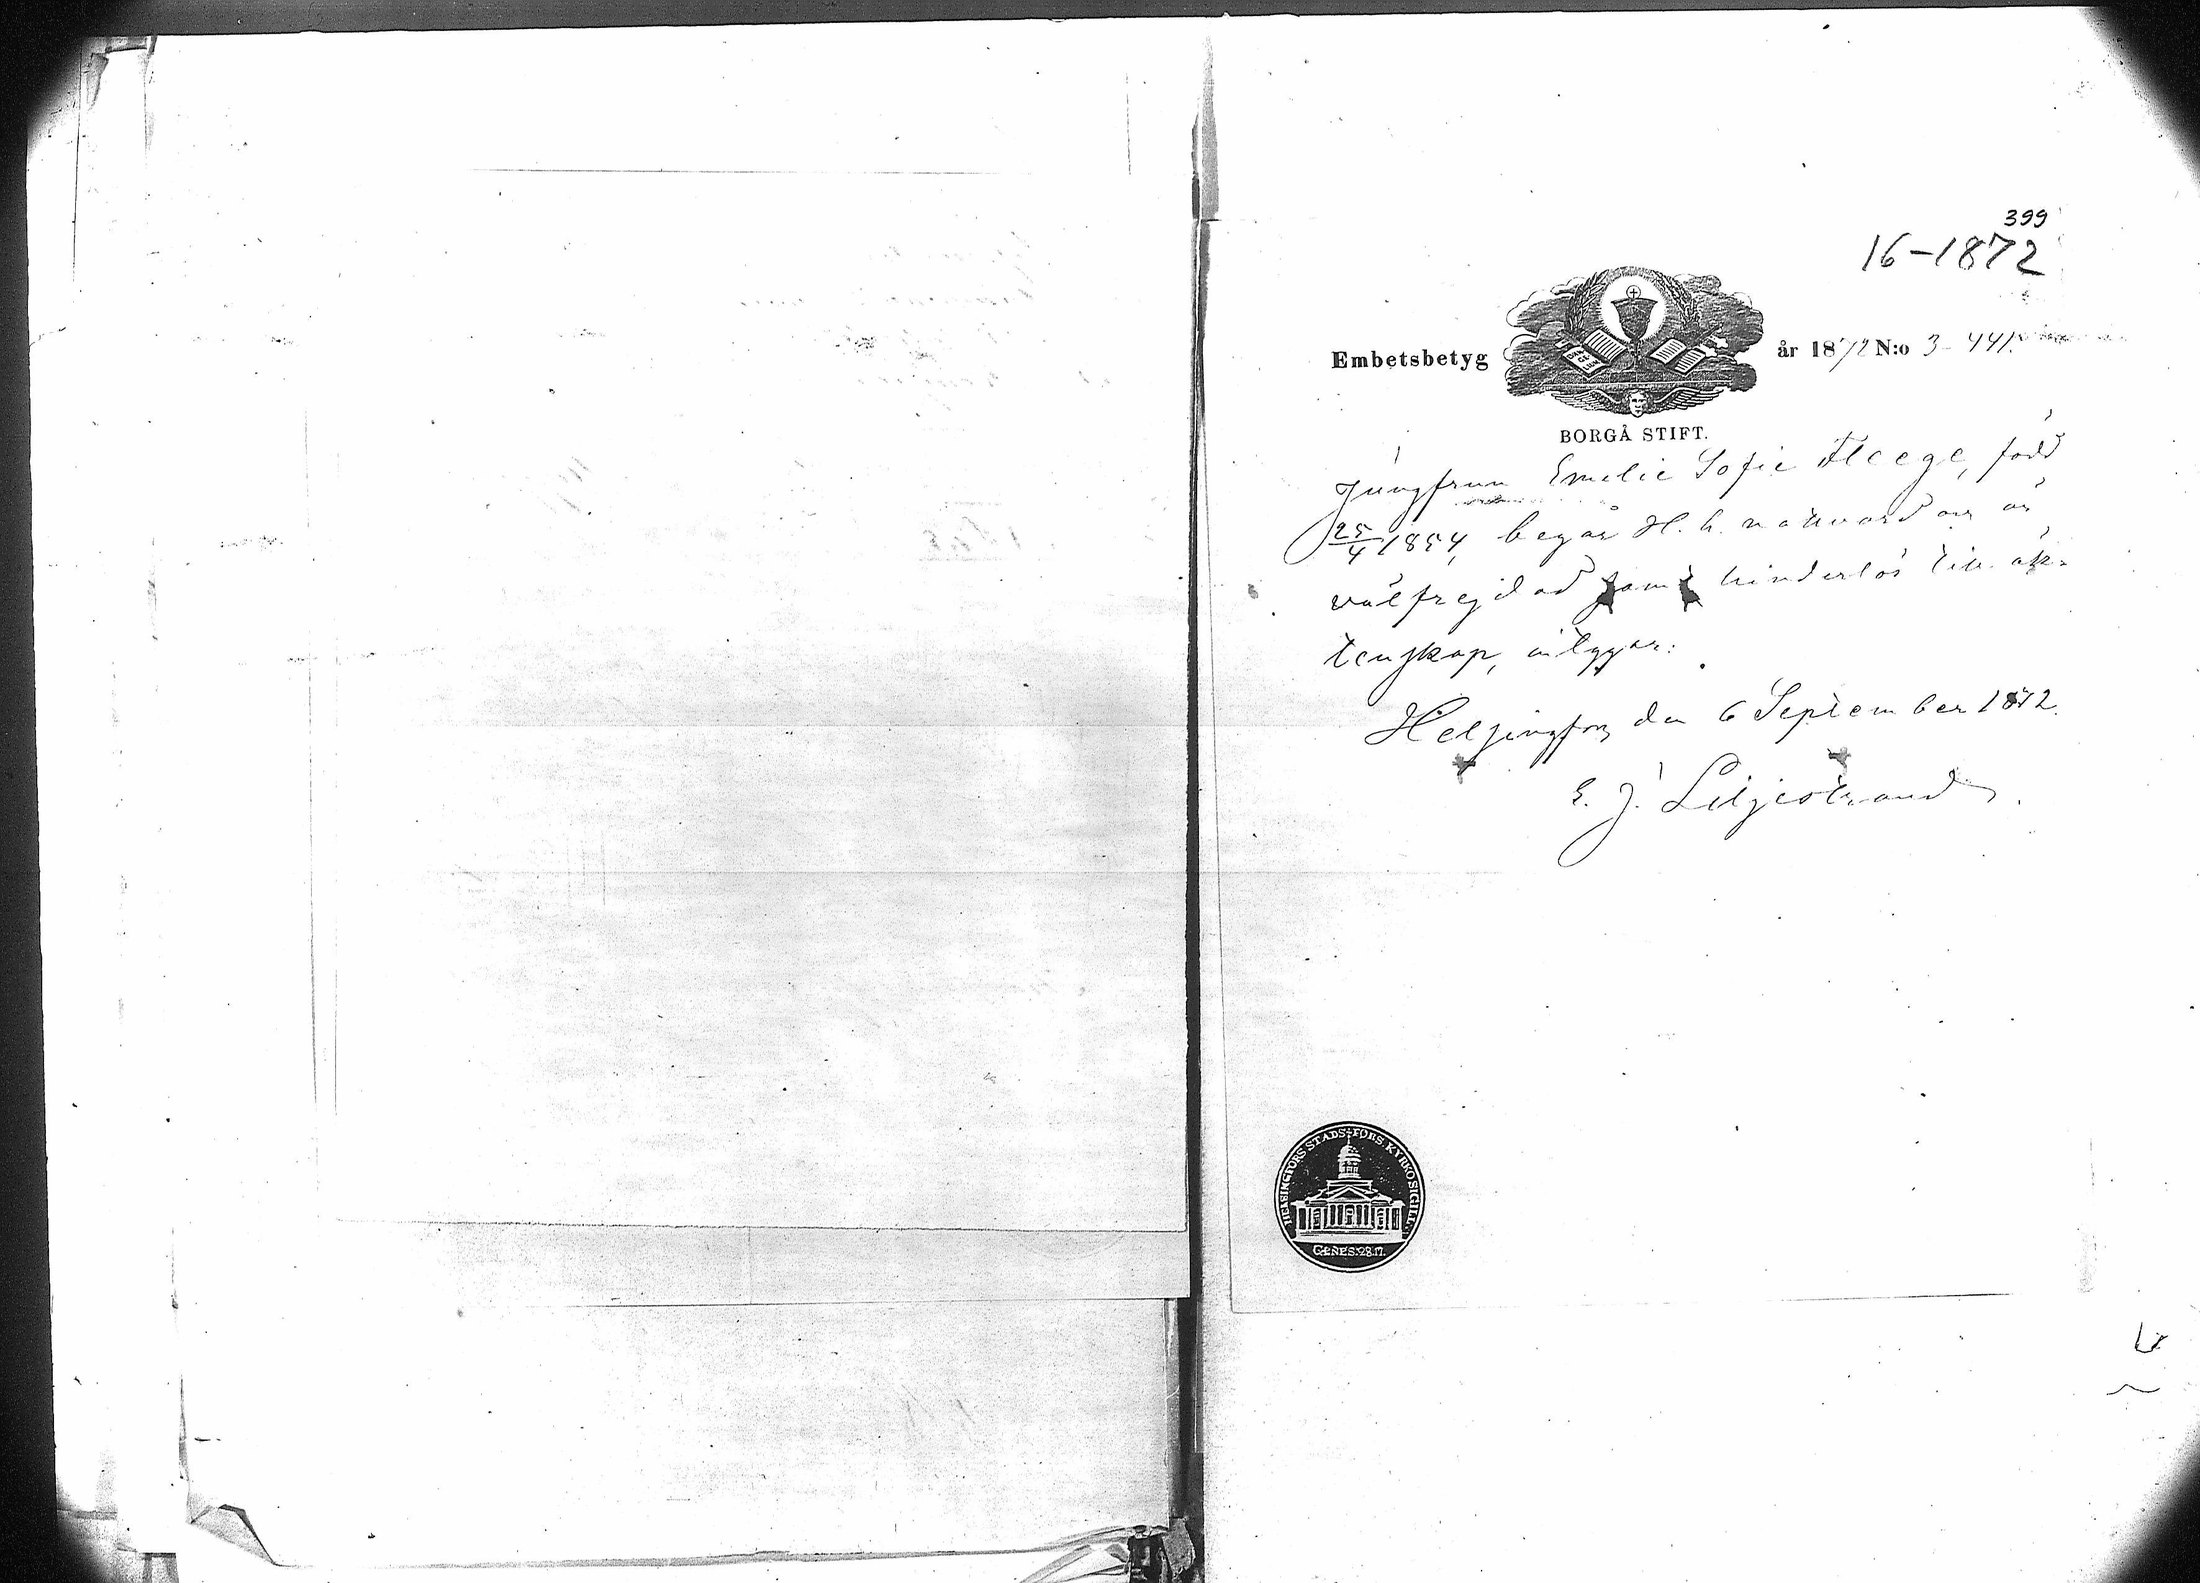 399
16-1872
Embetsbetyg år 1872 N:o 3-441.
BORGÅ STIFT.
Jungfrun Emelie Sofie Fleege, född
25/4 1854, begår H. h. nattvard och är
välfrejdad samt hinderlös till äk-
tenskap, intygar:
Helsingfors den 6 September 1872.
E. J. Liljestrand.
HELSINGFORS STADS-FÖRS. KYRKOSIGILL.
GENES: 28.17.